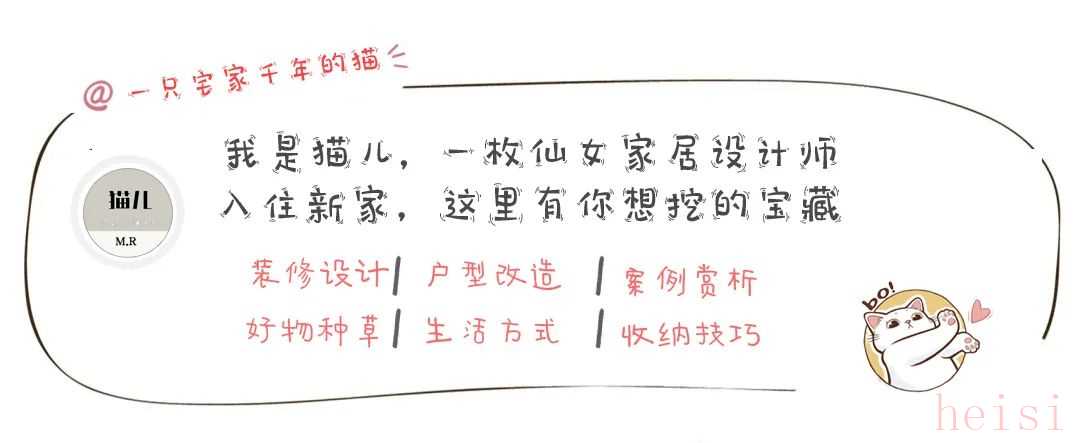 @一只宅家千年的猫
我是猫儿，一枚仙女家居设计师
入住新家，这里有你想挖的宝藏
猫儿
M.R
装修设计 | 户型改造 | 案例赏析
好物种草 | 生活方式 | 收纳技巧
bo!
heisi